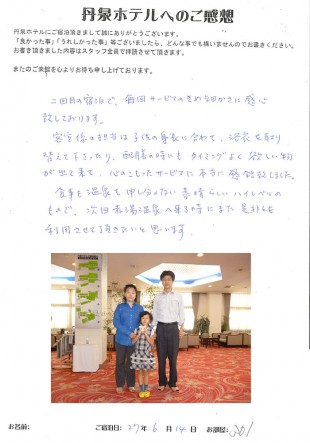 丹泉ホテルへのご感想
丹泉ホテルにご宿泊頂きまして誠にありがとうございます。
「良かった事」「うれしかった事」等ございましたら、どんな事でも構いませんのでお書きください。
お書き頂きました内容はスタッフ全員で拝読させて頂きます。
またのご来館を心よりお待ち申し上げております。
二回目の宿泊で、毎回サービスのきめ細かさに感心
致しております。
客室係の担当は子供の身長に合わせて、浴衣を取り
替えて下さったり、配膳の時にもタイミングよく欲しい物
が出て来て、心のこもったサービスに本当に感銘致しました。
食事も温泉も申し分ない素晴らしいハイレベルの
もので、次回赤湯温泉へ来る時にまた是非とも
利用させて頂きたいと思います。
お名前: ご宿泊日: 27年 6月 14日 お部屋: 501